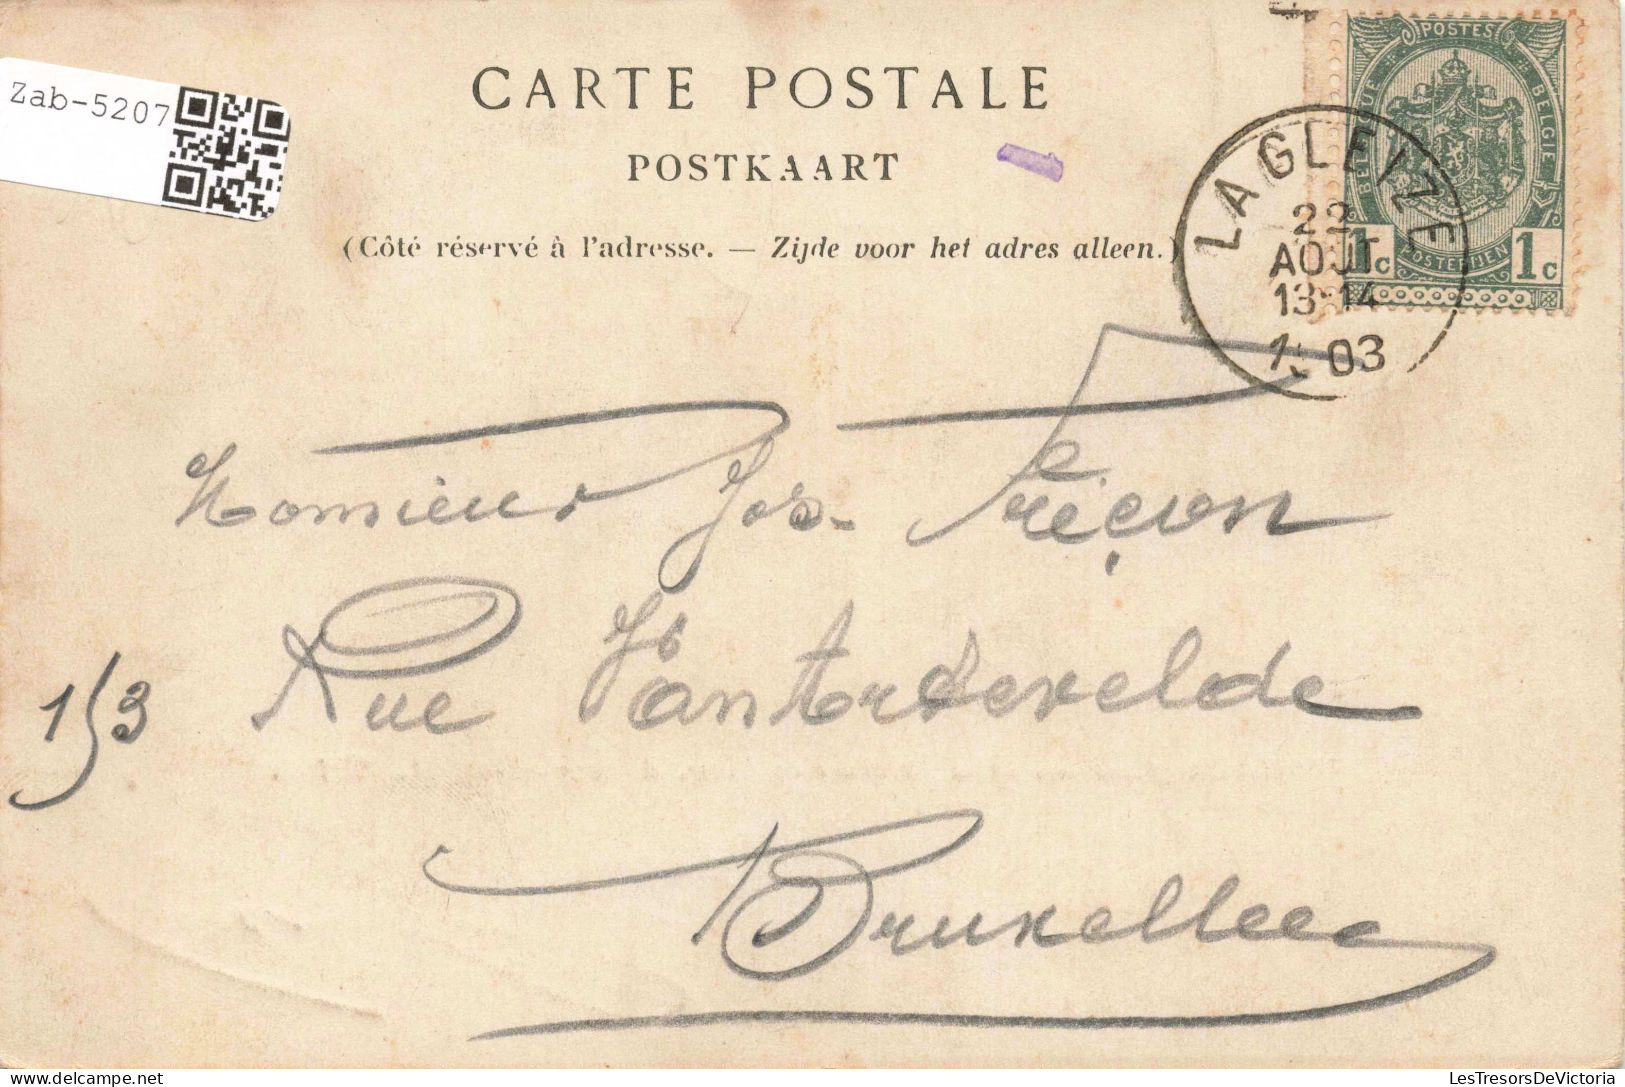 Zab-5207
CARTE POSTALE
POSTKAART
(Côté réservé à l'adresse. — Zijde voor het adres alleen.)
POSTES
BELGIQUE BELGIE
1c POSTERIJEN 1c
LA GLEIZE
22
AOUT
13-14
1903
Monsieur Jos. Frieçon
153 Rue Van Artevelde
Bruxelles
LesTresorsDeVictoria